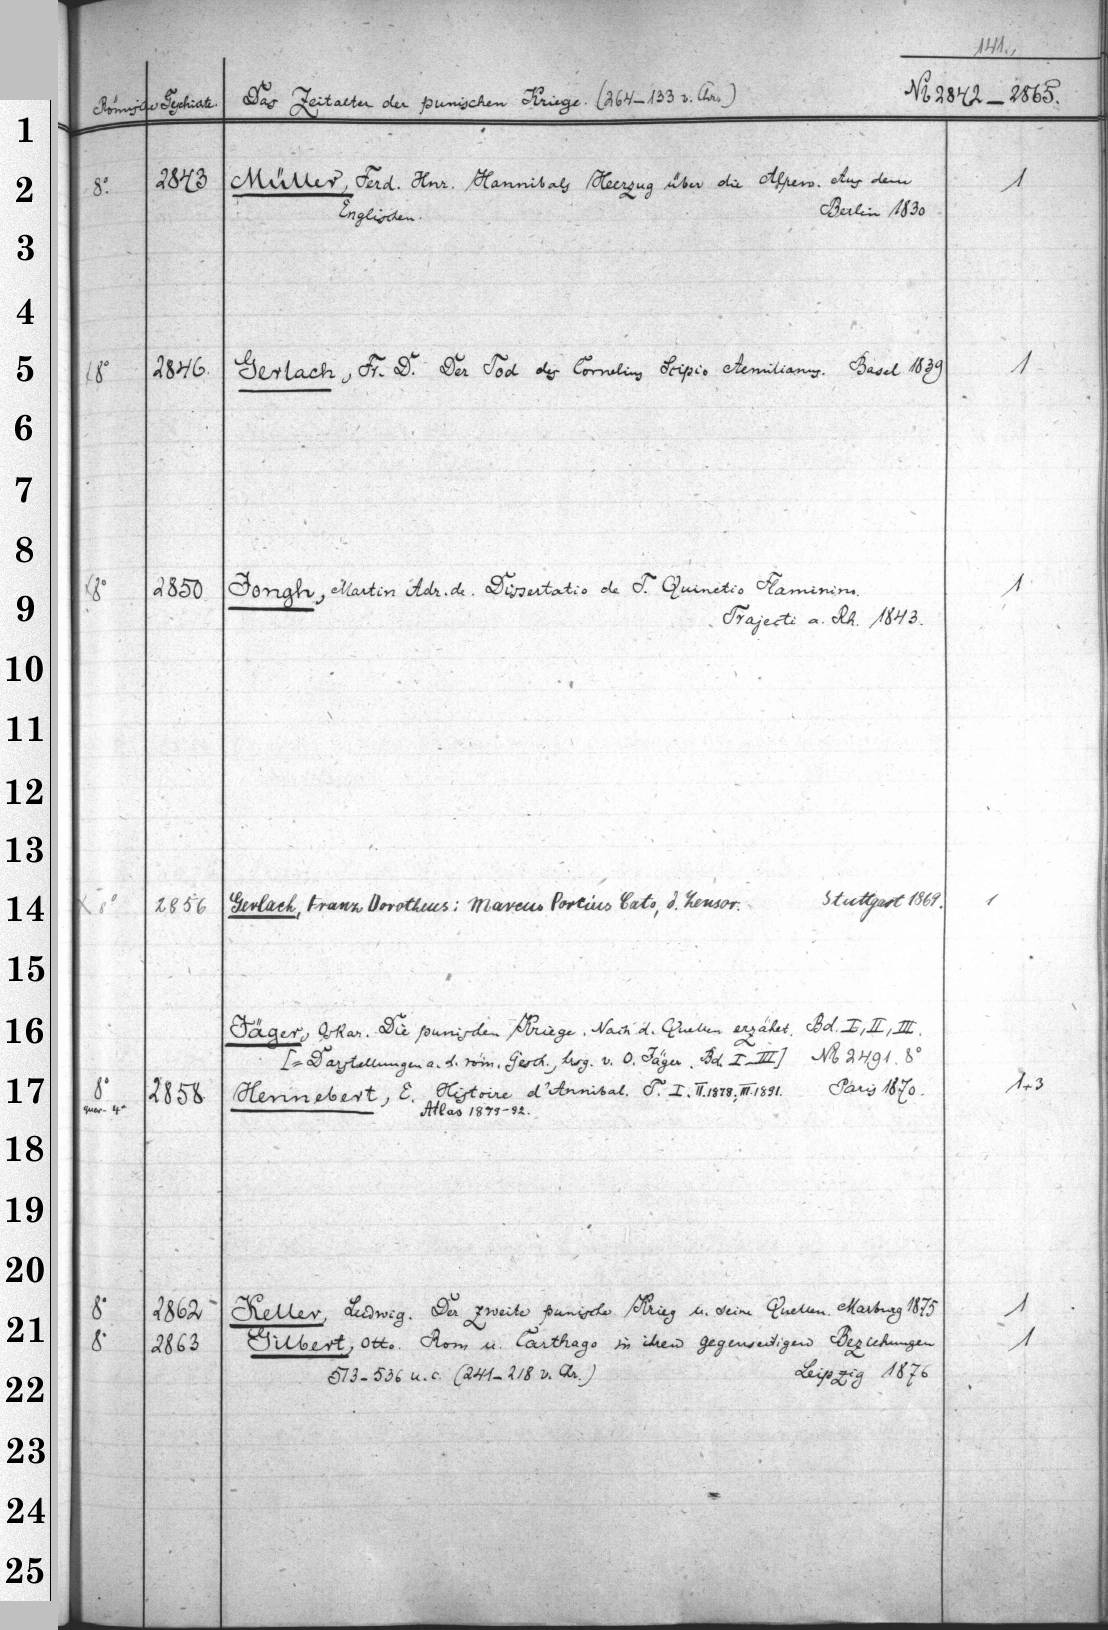 141.
Römische Geschichte. Das Zeitalter der punischen Kriege. (264–133 v. Chr.) № 2842–2865.
1
2 8°. 2843 Müller, Ferd. Hnr. Hannibals Heerzug über die Alpen. Aus dem 1
Englischen. Berlin 1830
3
4
5 8° 2846. Gerlach, Fr. D. Der Tod des Cornelius Scipio Aemilianus. Basel 1839 1
6
7
8
9 8° 2850 Jongh, Martin Adr. de. Dissertatio de T. Quinctio Flaminino. 1
Trajecti a. Rh. 1843.
10
11
12
13
14 8° 2856 Gerlach, Franz Dorotheus: Marcus Porcius Cato, d. Zensor. Stuttgart 1869. 1
15
16 Jäger, Oskar. Die punischen Kriege. Nach d. Quellen erzählt. Bd. I, II, III.
[= Darstellungen a. d. röm. Gesch., hrsg. v. O. Jäger. Bd. I–III] № 2491. 8°
17 8° 2858 Hennebert, E. Histoire d'Annibal. T. I. II. 1878, III. 1891. Paris 1870. 1+3
quer-4° Atlas 1879-92.
18
19
20
8° 2862 Keller, Ludwig. Der zweite punische Krieg u. seine Quellen. Marburg 1875 1
21 8° 2863 Gilbert, Otto. Rom u. Carthago in ihren gegenseitigen Beziehungen 1
22 513–536 u. c. (241–218 v. Chr.) Leipzig 1876
23
24
25